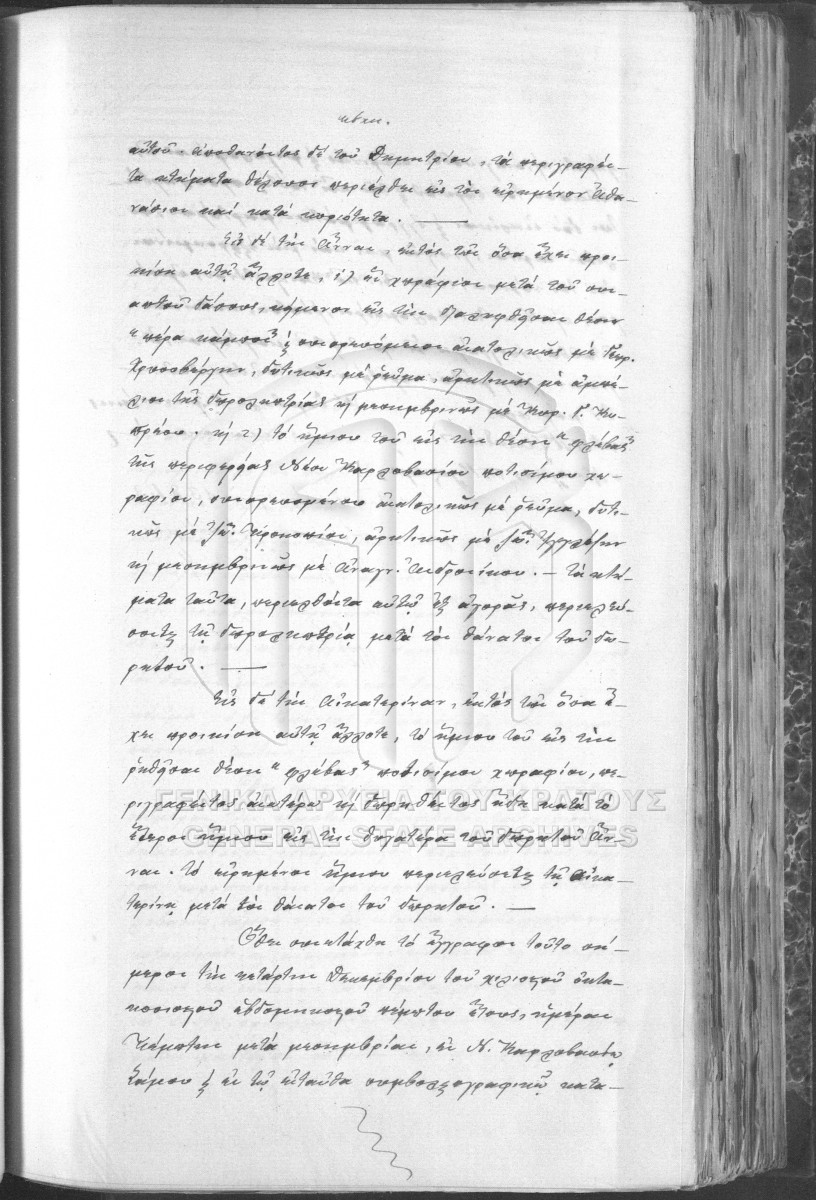 αὐτοῦ. ἀποθανόντος δὲ τοῦ Δημητρίου, τὰ περιγραφέν-
τα κτήματα θέλουσι περιέλθει εἰς τὸν εἰρημένον Ἀθα-
νάσιον καὶ κατὰ κυριότητα. —
Εἰς δὲ τὴν Ἄνναν, ἐκτὸς τῶν ὅσα ἔχει προι-
κίσῃ αὐτῇ ἄλλοτε, 1) ἓν χωράφιον μετὰ τοῦ συν-
αυτοῦ δάσους, κείμενον εἰς τὴν διαληφθεῖσαν θέσιν
"πέρα κάμπος" συνορευόμενον ἀνατολικῶς μὲ Γεωρ.
Χρυσοβέργην, δυτικῶς μὲ ῥεῦμα, ἀρκτικῶς μὲ ἀμπέ-
λιον τῆς δωροληπτρίας κ μεσημβρινῶς μὲ Γ. Κυ-
πραίου. κ 2) τὸ ἥμισυ τοῦ εἰς τὴν θέσιν "φλέβαις"
τῆς περιφερείας Νέου Καρλοβασίου ποτισίμου χω-
ραφίου, συνορευομένου ἀνατολικῶς μὲ ῥεῦμα, δυτι-
κῶς μὲ Ἰω. Προκοπίου, ἀρκτικῶς μὲ Ἰω.
κ μεσημβρινῶς μὲ Ἀναγν. Ἀνδρονίκου. — Τὰ κτή-
ματα ταῦτα, περιελθόντα αὐτῷ ἐξ ἀγορᾶς, περιελεύ-
σονται τῇ δωροληπτρίᾳ μετὰ τὸν θάνατον τοῦ δω-
ρητοῦ. —
Εἰς δὲ τὴν Αἰκατερίναν, ἐκτὸς τῶν ὅσα ἔ-
χει προικίσῃ αὐτῇ ἄλλοτε, τὸ ἥμισυ τοῦ εἰς τὴν
ῥηθεῖσαν θέσιν "φλέβαις" ποτισίμου χωραφίου, πε-
ριγραφέντος ἀνωτέρω κ δωρηθέντος ἤδη κατὰ τὸ
ἕτερον ἥμισυ εἰς τὴν θυγατέρα τοῦ δωρητοῦ Ἄν-
ναν. τὸ εἰρημένον ἥμισυ περιελεύσεται τῇ Αἰκα-
τερίνῃ μετὰ τὸν θάνατον τοῦ δωρητοῦ. —
Ὅθεν συνετάχθη τὸ ἔγγραφον τοῦτο σή-
μερον τὴν τετάρτην Δεκεμβρίου τοῦ χιλιοστοῦ ὀκτα-
κοσιοστοῦ ἑβδομηκοστοῦ πέμπτου ἔτους, ἡμέραν
Πέμπτην μετὰ μεσημβρίαν, ἐν Ν. Καρλοβασίῳ
Σάμου ἐν τῷ ἐνταῦθα συμβολαιογραφικῷ κατα-
ΓΕΝΙΚΑ ΑΡΧΕΙΑ ΤΟΥ ΚΡΑΤΟΥΣ
GENERAL STATE ARCHIVES